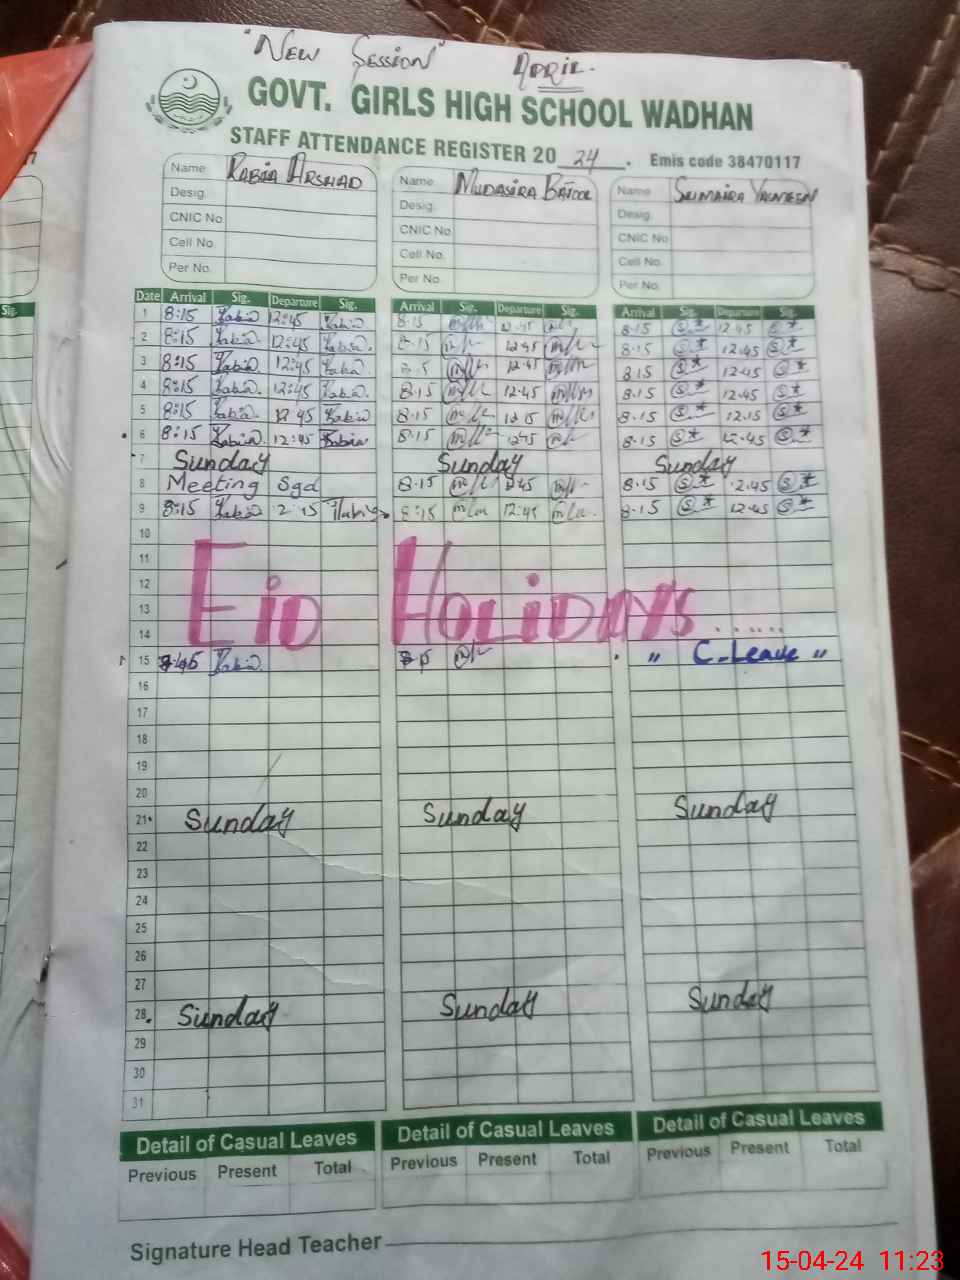 "New Session" April.
GOVT. GIRLS HIGH SCHOOL WADHAN
STAFF ATTENDANCE REGISTER 20 24 . Emis code 38470117
Name Rabia Arshad Name Mudasira Batool Name Sumaira Yasmeen
Desig. Desig. Desig.
CNIC No CNIC No CNIC No
Cell No. Cell No. Cell No.
Per No. Per No. Per No.
Date Arrival Sig. Departure Sig. Arrival Sig. Departure Sig. Arrival Sig. Departure Sig.
1 8:15 Rabia 12:45 Rabia 8.15 12.45 8.15 12.45
2 8:15 Rabia. 12:45 Rabia. 8.15 12.45 8.15 12.45
3 8:15 Rabia 12:45 Rabia. 12.45 8.15 12.45
4 8:15 Rabia. 12:45 Rabia. 8.15 12.45 8.15 12.45
5 8:15 Rabia. 12 45 Rabia 8.15 12.15 8.15 12.15
6 8:15 Rabia. 12:45 Rabia 8.15 1245 8.15 12.45
7 Sunday Sunday Sunday
8 Meeting Sgd 8.15 8.15 2.45
9 8:15 Rabia 2:15 Rabia 8:15 12:45 8.15 12.45
10
11
12
13 Eid Holidays......
14
15 8:45 Rabia. 8.15 " C.Leave "
16
17
18
19
20
21 Sunday Sunday Sunday
22
23
24
25
26
27
28 Sunday Sunday Sunday
29
30
31
Detail of Casual Leaves Detail of Casual Leaves Detail of Casual Leaves
Previous Present Total Previous Present Total Previous Present Total
Signature Head Teacher
15-04-24 11:23